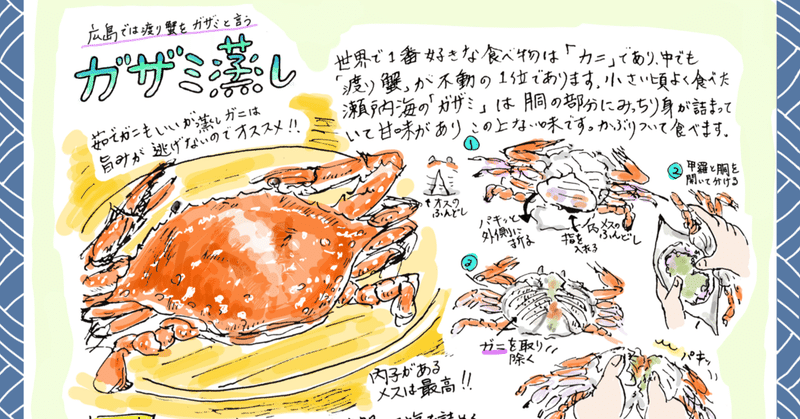 広島では渡り蟹をガザミと言う
ガザミ蒸し
茹でガニもいいが蒸しガニは
旨みが逃げないのでオススメ!!
世界で1番好きな食べ物は「カニ」であり、中でも
「渡り蟹」が不動の1位であります。小さい頃よく食べた
瀬戸内海の「ガザミ」は胴の部分にみっちり身が詰まって
いて甘味があり この上ない味です。かぶりついて食べます。
①
オスの
ふんどし
パキッと
外側に
まげる
指を
入れる
メスの
ふんどし
② 甲羅と胴を
開いて分ける
②
ガニを取り
除く
パキッ
内子がある
メスは最高!!